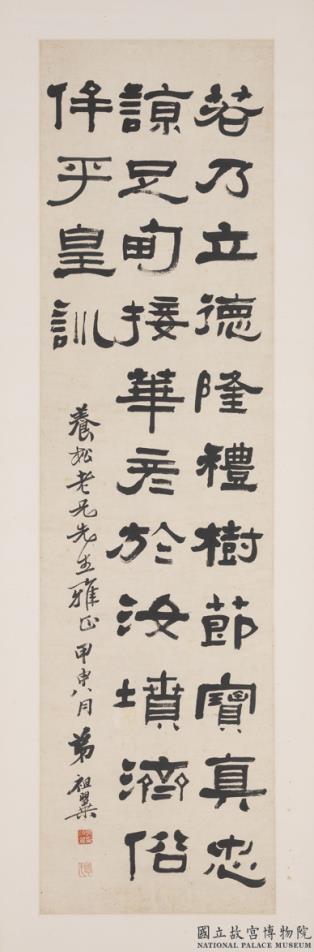 若乃立德隆禮樹節寶真忠
諒足㽙接華彥於汝墳濟俗
侔乎皇訓
養松老兄先生雅正 甲申八月 弟祖翼
國立故宮博物院
NATIONAL PALACE MUSEUM